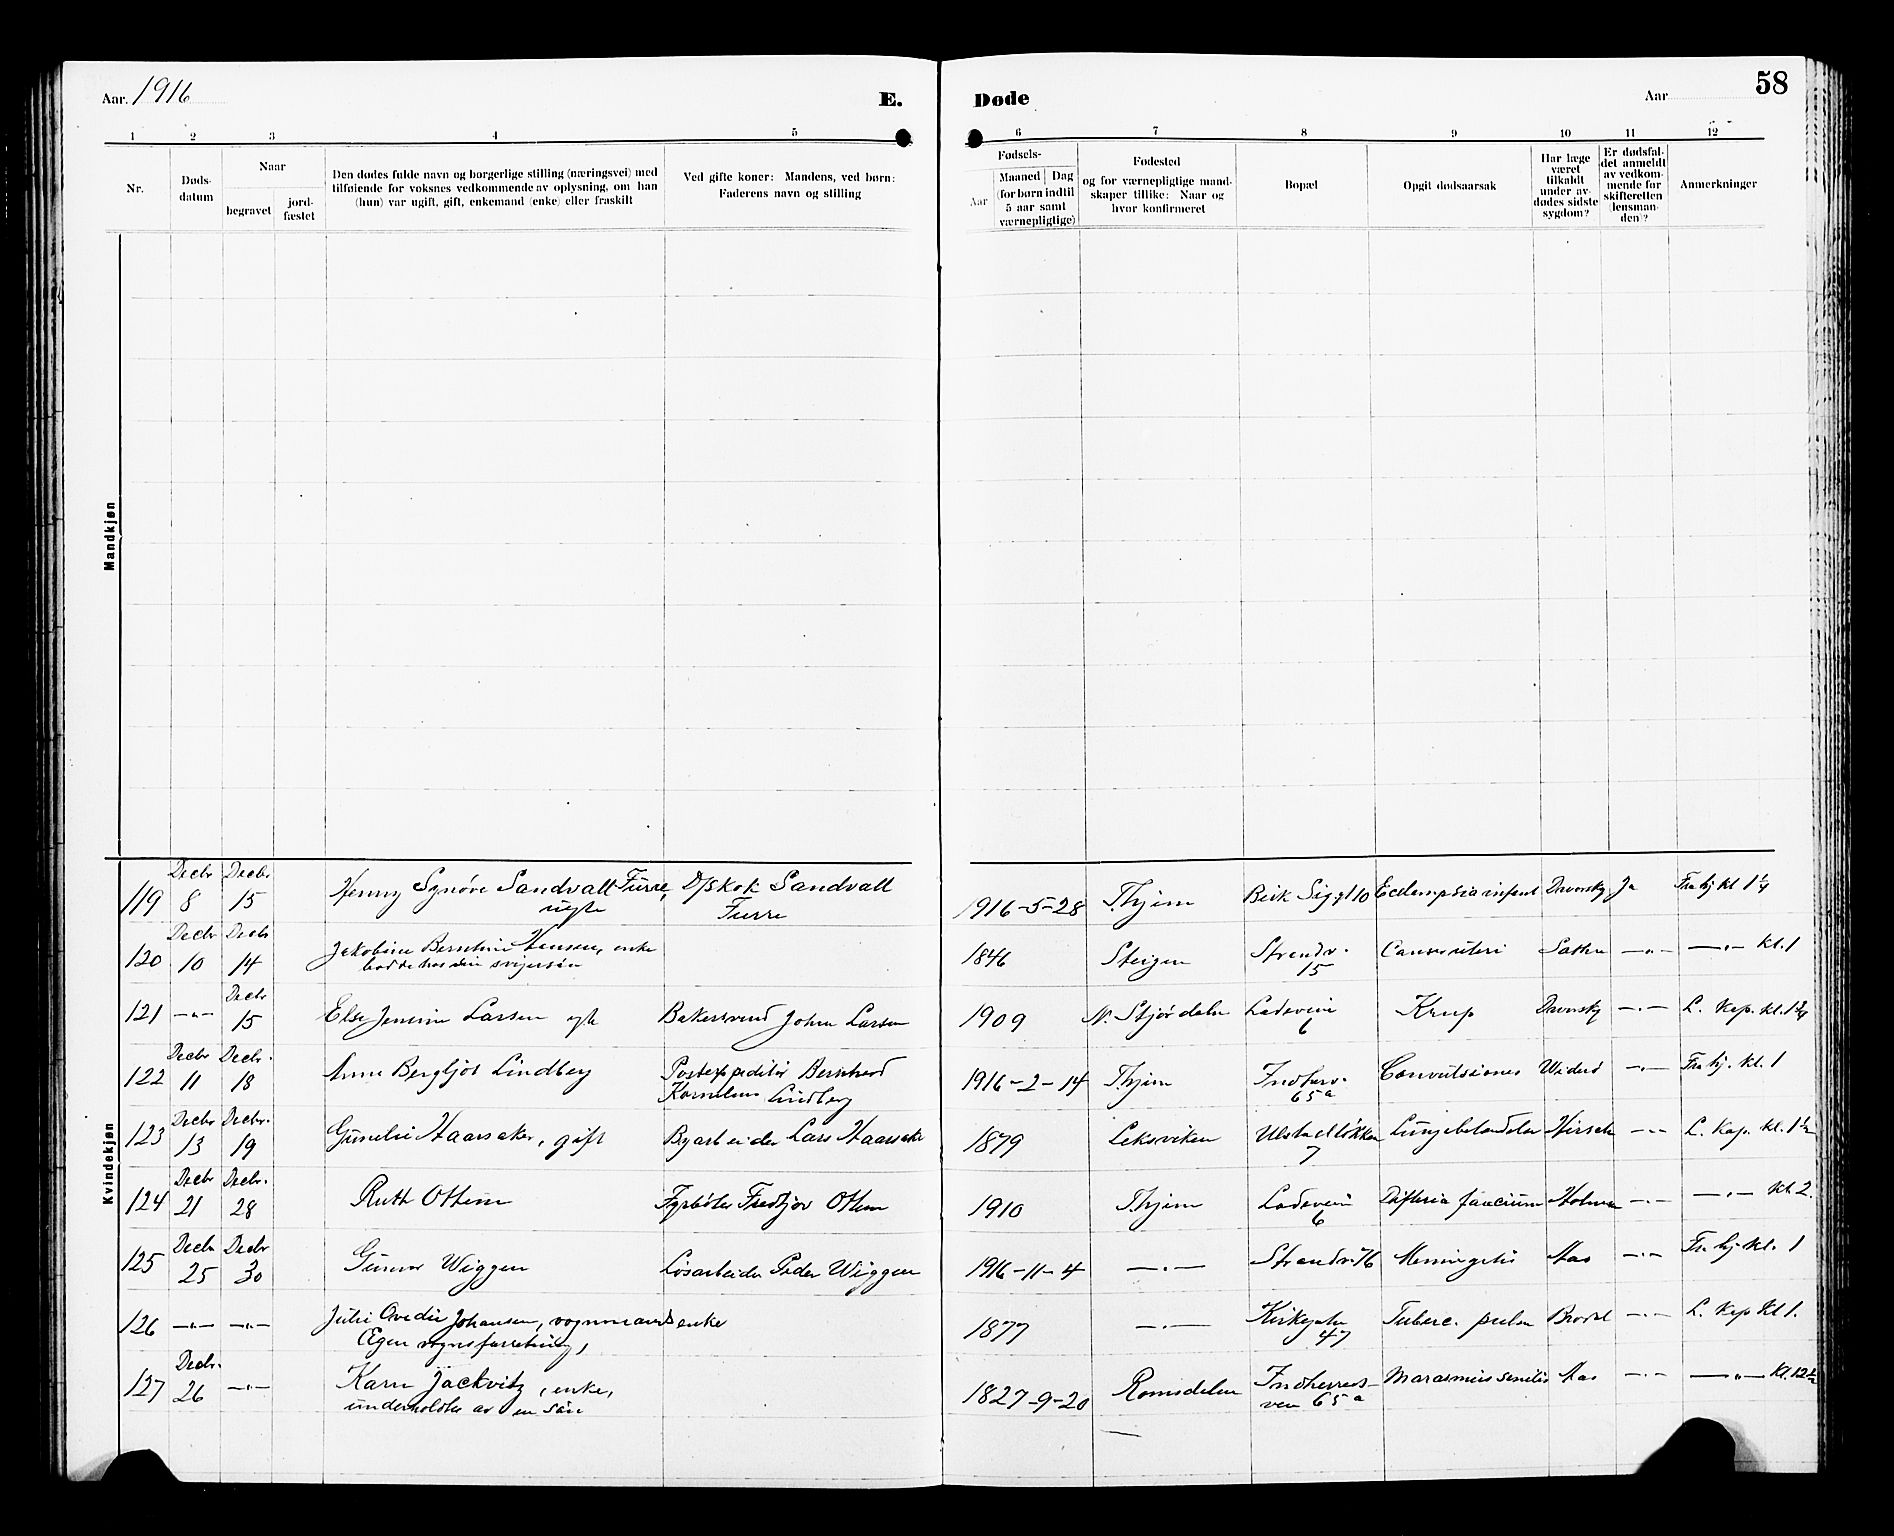 Aar. 1916
E.
Døde
Aar
58
1 2 3 4 5 6 7 8 9 10 11 12
Nr.
Døds-
datum
Naar
begravet
jord-
fæstet
Den dødes fulde navn og borgerlige stilling (næringsvei) med
tilføiende for voksnes vedkommende av oplysning, om han
(hun) var ugift, gift, enkemand (enke) eller fraskilt
Ved gifte koner: Mandens, ved børn:
Faderens navn og stilling
Fødsels-
Aar
Maaned Dag
(for børn indtil
5 aar samt
værnepligtige)
Fødested
og for værnepligtige mand-
skaper tillike: Naar og
hvor konfirmeret
Bopæl
Opgit dødsaarsak
Har læge
været
tilkaldt
under av-
dødes sidste
sygdom?
Er dødsfal-
det anmeldt
av vedkom-
mende for
skifteretten
(lensman-
den)?
Anmerkninger
Mandkjøn
Kvindekjøn
119 Decbr 8 Decbr 15 Henny Synøve Sandvall Furre, D/skok Sandvall
ugte Furre
1916-5-28 Thjem Birk Sigg 10 Eclampsia infant Davorsky Ja Fra hj kl 1 1/4
120 Decbr 10 Decbr 14 Jakobine Hansen, enke
bodde hos sin svigersøn
1846 Steigen Strandv. 15 Cancer uteri —"— —"— kl. 1
121 —"— Decbr 15 Else Jensine Larsen egte Bakersvend Johan Larsen
1909 N. Stjørdalen Ladeveien 6 Krup Davorsky —"— L. Kap. kl.
122 Decbr 11 Decbr. 18 Anna Bergljot Lindberg Postexpeditør Bernhard
Kornelius Lindberg
1916-2-14 Thjem Indherv. 65a Convulsiones Widerø —"— Fra hj. kl. 1
123 Decbr 13 Decbr. 19 Haarsaker, gift Byarbeider Lars Haarsaker
1879 Leksviken Ulstadløkken 7 Lungebetændelse Hirsch —"— L. Kap. kl. 1 1/2
124 Decbr 21 Decbr. 28 Ruth Ottem Fyrbøter Fredtjov Ottem
1910 Thjem Ladeveien 6 Difteria faucium —"— —"— kl 2.
125 Decbr 25 Decbr 30 Gunvor Wiggen Løsarbeider Peder Wiggen
1916-11-4 —"— Strandv. 16 Meningitis Aas —"— Fra hj. kl. 1
126 —"— —"— Julie Ovedie Johansen, vognmandsenke
Egen vognforretning,
1877 —"— Kirkegaten 47 Tuberc. pulm —"— L. Kap kl 1.
127 Decbr. 26 —"— Karn Jackvitz, enke,
underholdtes av en søn
1827-9-20 Romsdalen Indherreds-
veien 65a Marasmus senilis Aas —"— —"— kl. 12 1/2